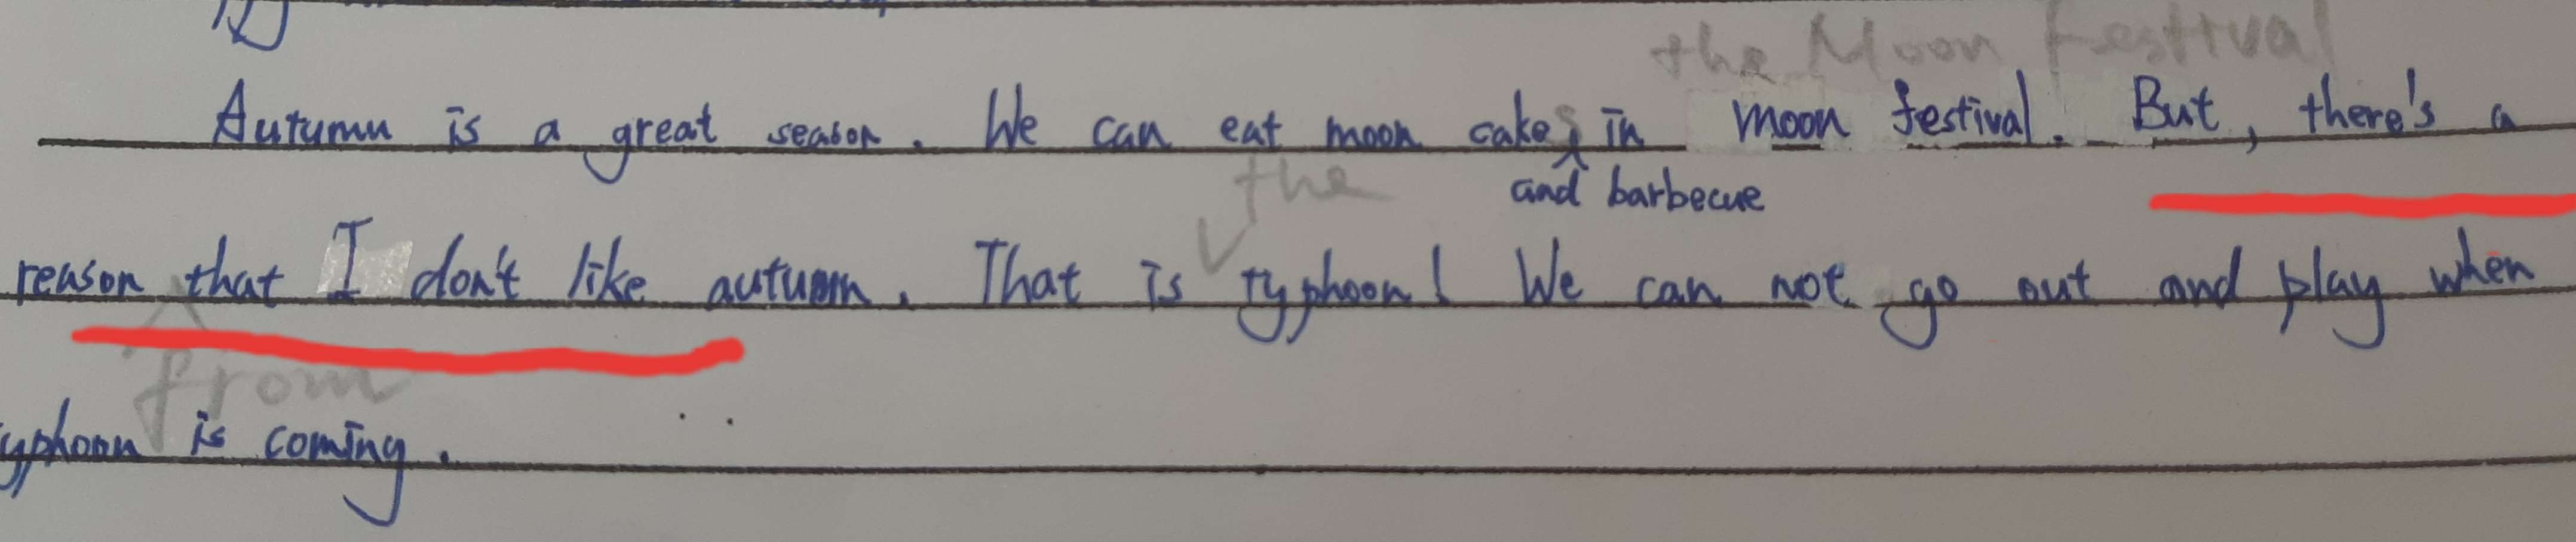 the Moon Festival
Autumn is a great season. We can eat moon cakes in moon festival. But, there's a
the and barbecue
reason that I don't like autumn. That is typhoon! We can not go out and play when
from
is coming.